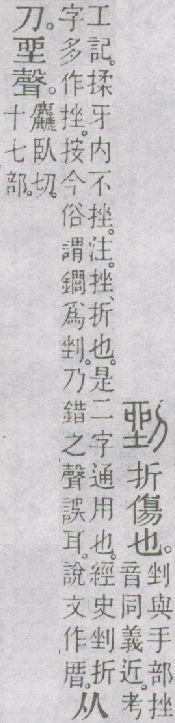 剉折傷也。
剉與手部挫
音同義近。考
工記。揉牙内不挫。注。挫、折也。是二字通用也。經史剉折
字多作挫。按今俗謂鐗爲剉。乃錯之聲誤耳。說文作厝。
从
刀。𡋲聲。
麤臥切。
十七部。